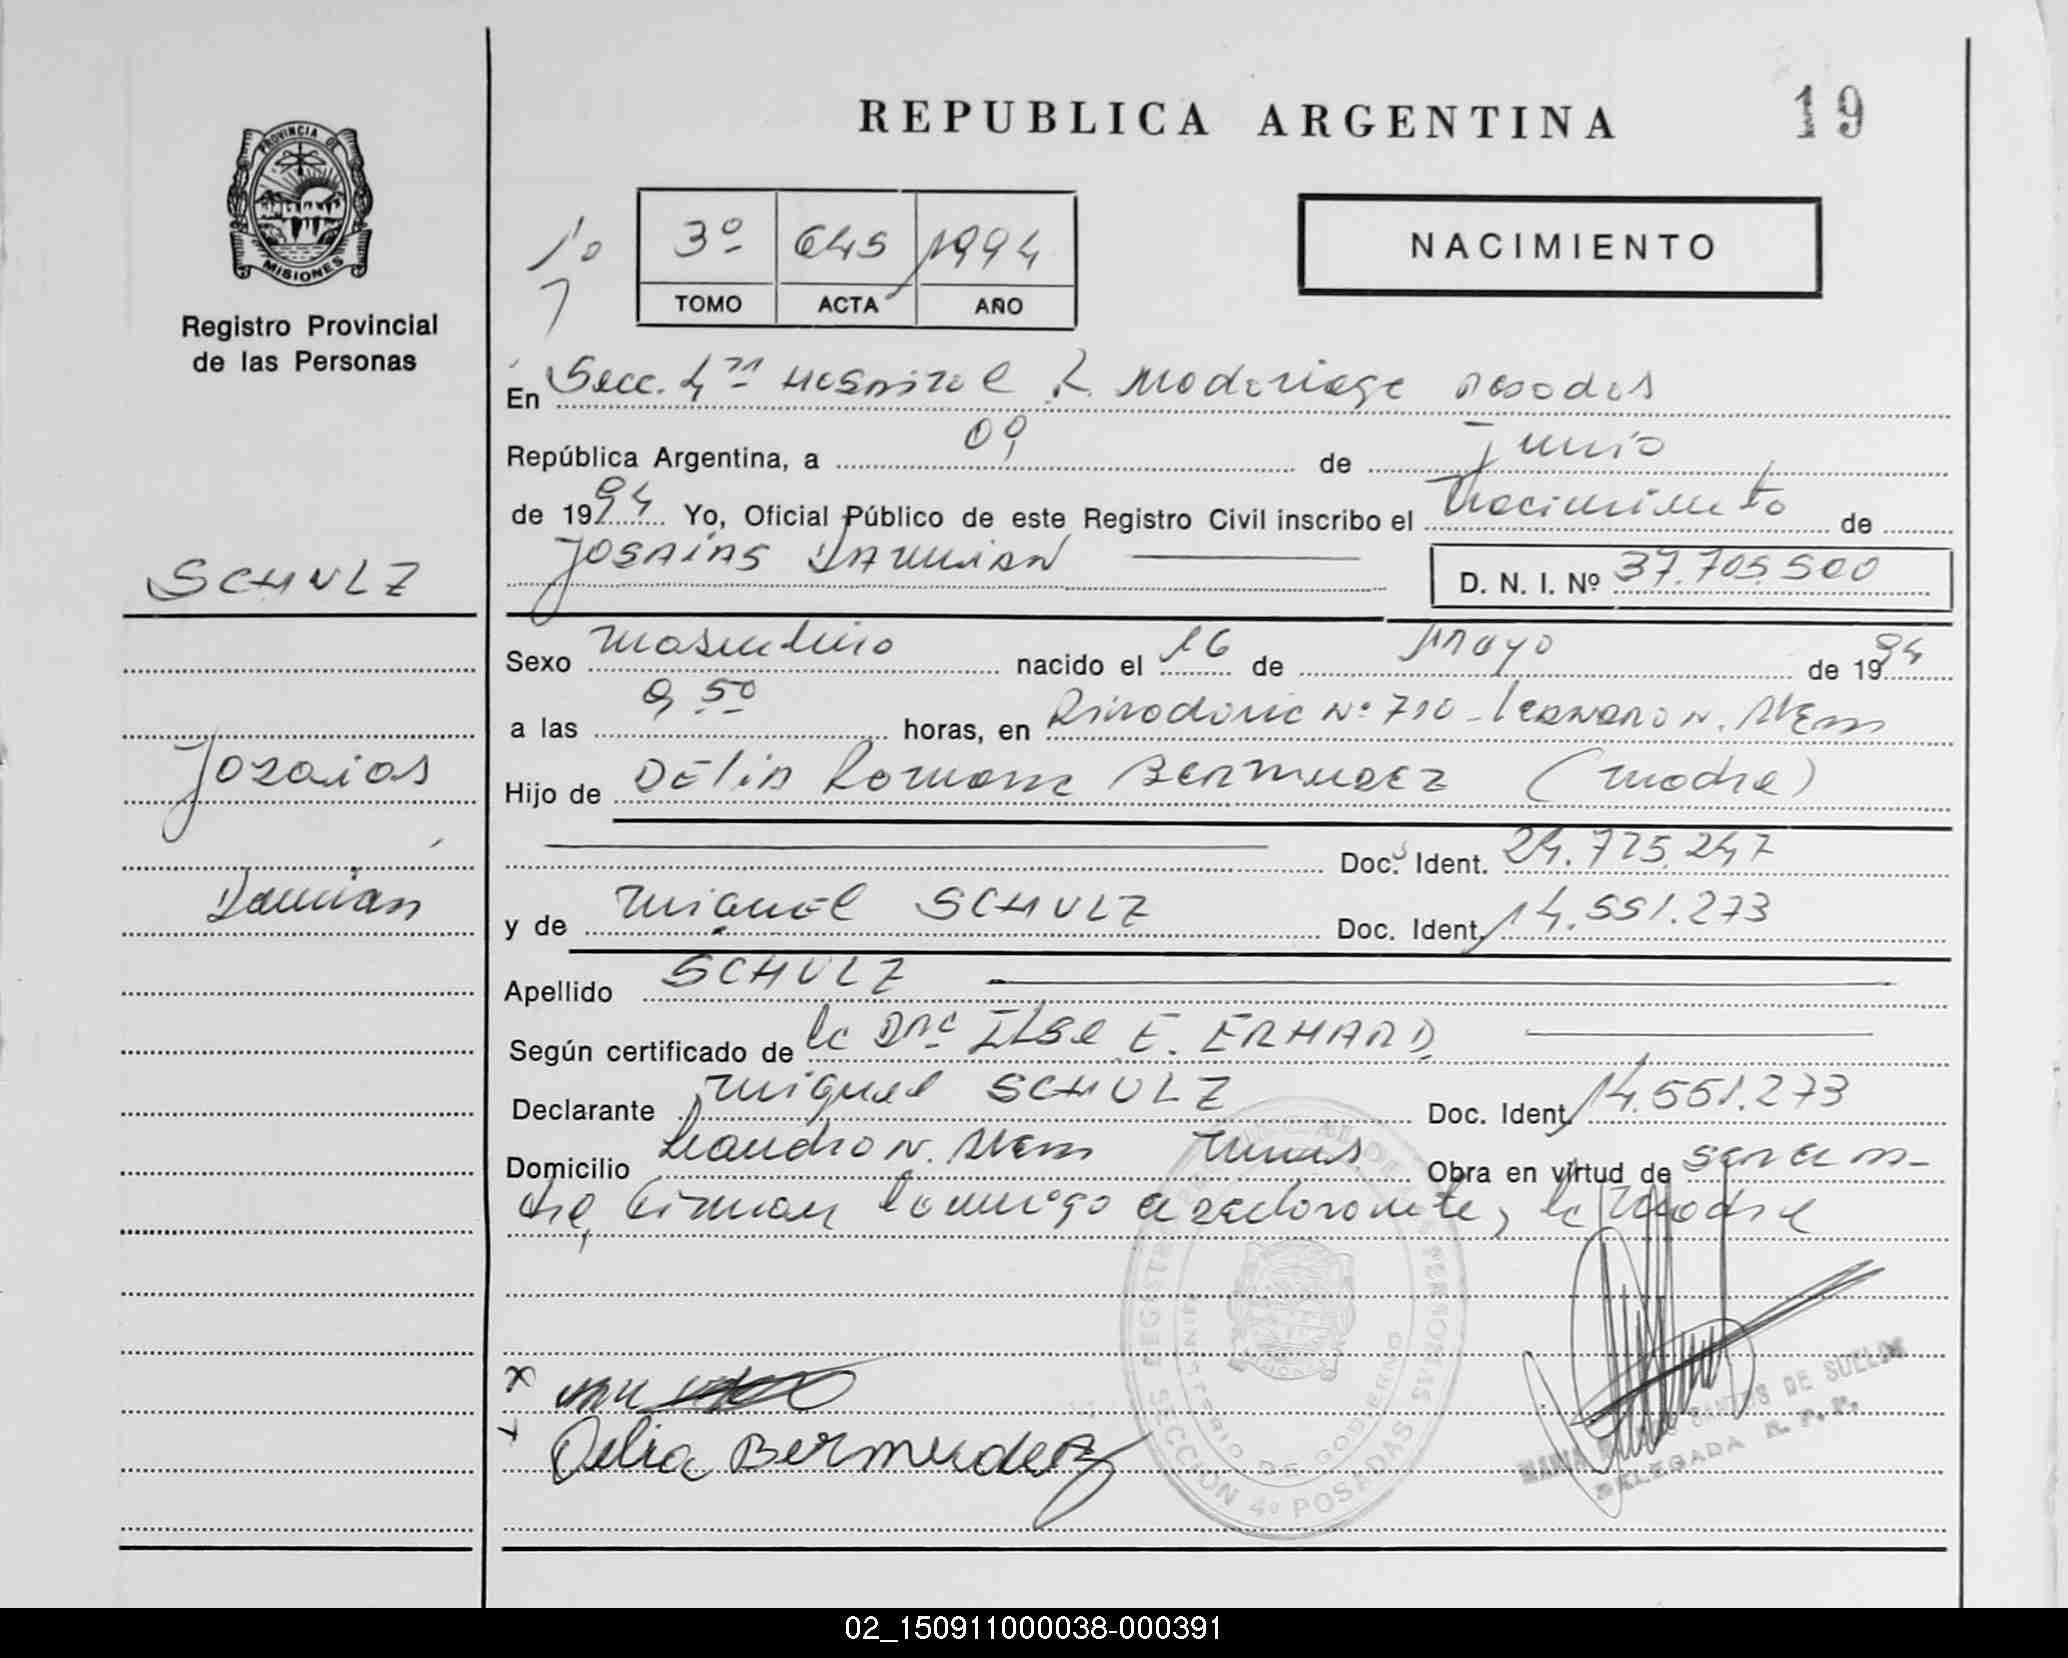 REPUBLICA ARGENTINA
19
PROVINCIA DE MISIONES
Registro Provincial
de las Personas
3º 645 1994
TOMO ACTA AÑO
NACIMIENTO
En Secc. 4ta Hospital R. Madariaga Posadas
República Argentina, a 09 de Junio
de 1994 Yo, Oficial Público de este Registro Civil inscribo el Nacimiento de
JOSAIAS DAMIAN
D. N. I. Nº 37.705.500
SCHULZ
Josaias
Damian
Sexo Masculino nacido el 16 de Mayo de 1994
a las 9,50 horas, en Rivadavia Nº 710 - N. Alem
Hijo de Delia Romana BERMUDEZ (madre)
Doc. Ident. 24.725.247
y de Miguel SCHULZ Doc. Ident. 14.551.273
Apellido SCHULZ
Según certificado de la Dra Ilse E. ERHARD
Declarante Miguel SCHULZ Doc. Ident. 14.551.273
Domicilio Leandro N. Alem Mnes. Obra en virtud de ser el pa-
dre, firman conmigo el declarante, la madre
Delia Bermudez
REGISTRO PROVINCIAL DE LAS PERSONAS
MINISTERIO DE GOBIERNO
SECCION 4º POSADAS
SANTOS DE SUELDO
DELEGADA R. P. P.
02_150911000038-000391